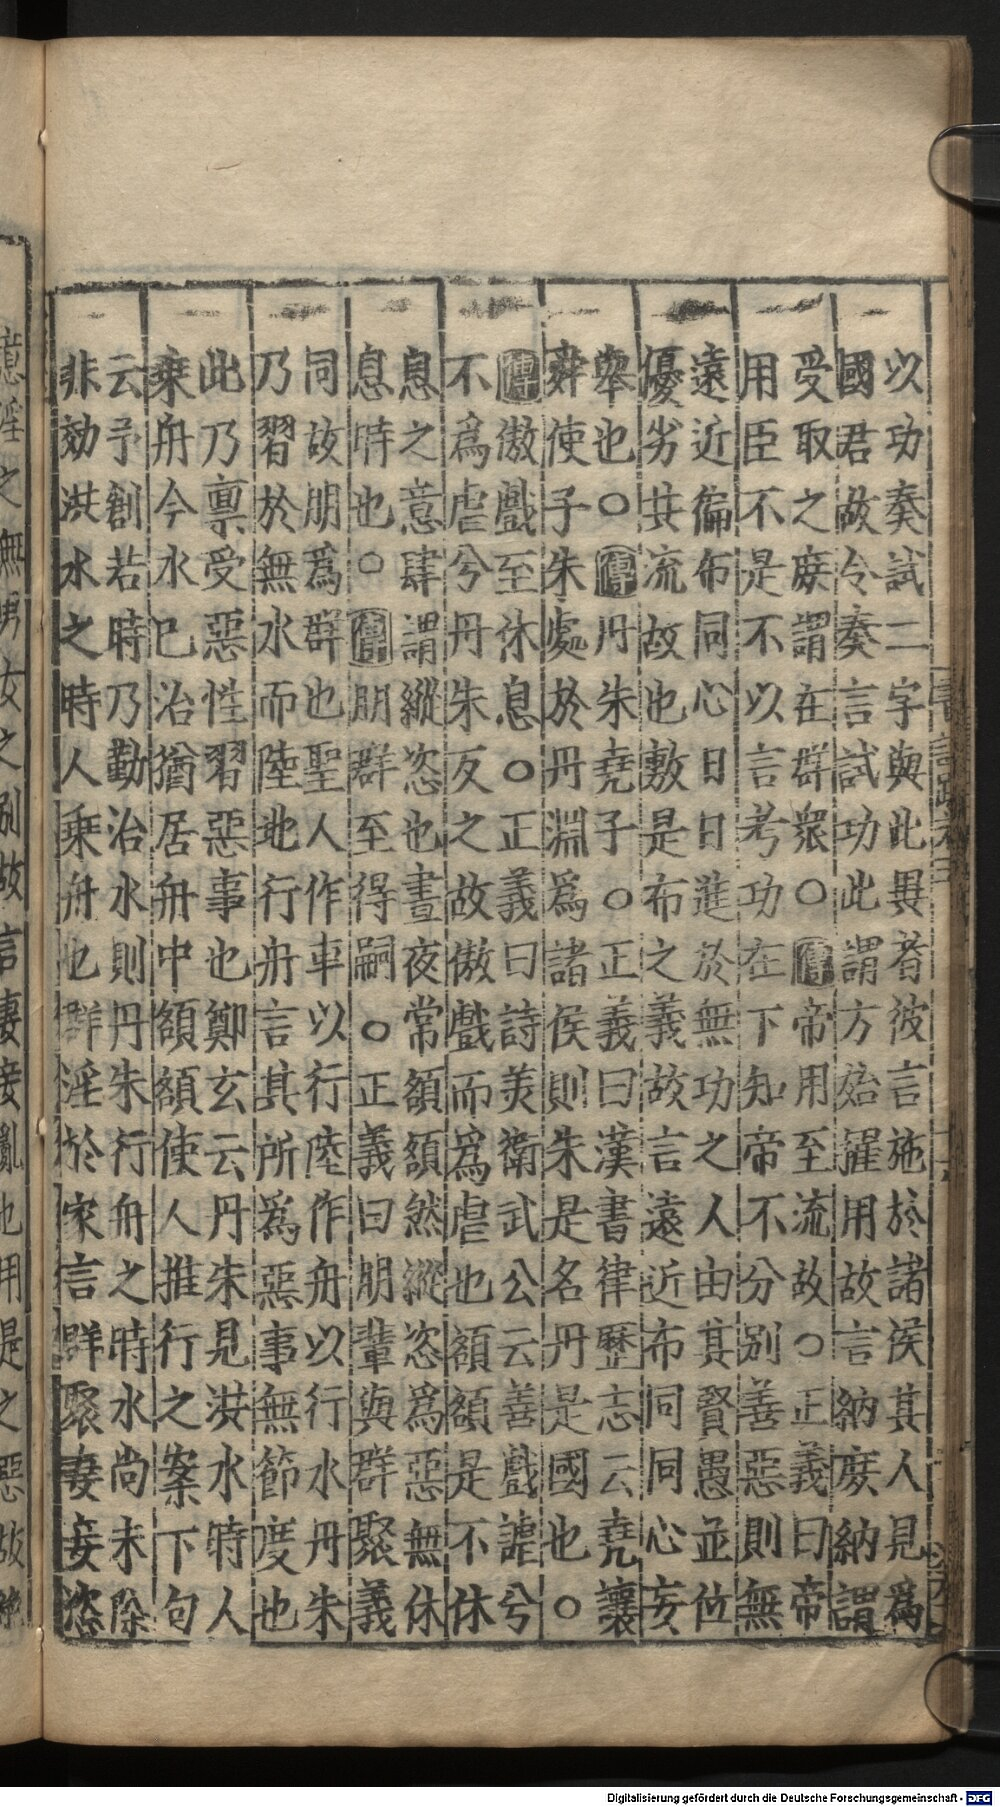 以功奏試二字與此異者彼言施於諸侯其人見爲
國君故令奏言試功此謂方始擢用故言納庻納謂
受取之庻謂在群衆○傳帝用至流故○正義曰帝
用臣不是不以言考功在下知帝不分别善惡則無
遠近徧布同心日日進於無功之人由其賢愚並位
優劣共流故也敷是布之義故言遠近布同同心妄
舉也○傳丹朱堯子○正義曰漢書律歷志云堯讓
舜使子朱處於丹淵爲諸侯則朱是名丹是國也○
傳傲戲至休息○正義曰詩美衛武公云善戲謔兮
不爲虐兮丹朱反之故傲戲而爲虐也頟頟是不休
息之意肆謂縱恣也晝夜常頟頟然縱恣爲惡無休
息時也○傳朋群至得嗣○正義曰朋輩與群聚義
同故朋爲群也聖人作車以行陸作舟以行水丹朱
乃習於無水而陸地行舟言其所爲惡事無節度也
此乃禀受惡性習惡事也鄭玄云丹朱見洪水時人
乗舟今水已治猶居舟中頟頟使人推行之案下句
云予創若時乃勤治水則丹朱行舟之時水尚未除
非効洪水之時人乗舟也群淫於家言群聚妻妾恣
意淫之無男女之别故言妻妾亂也用是之惡故絶
Digitalisierung gefördert durch die Deutsche Forschungsgemeinschaft - DFG